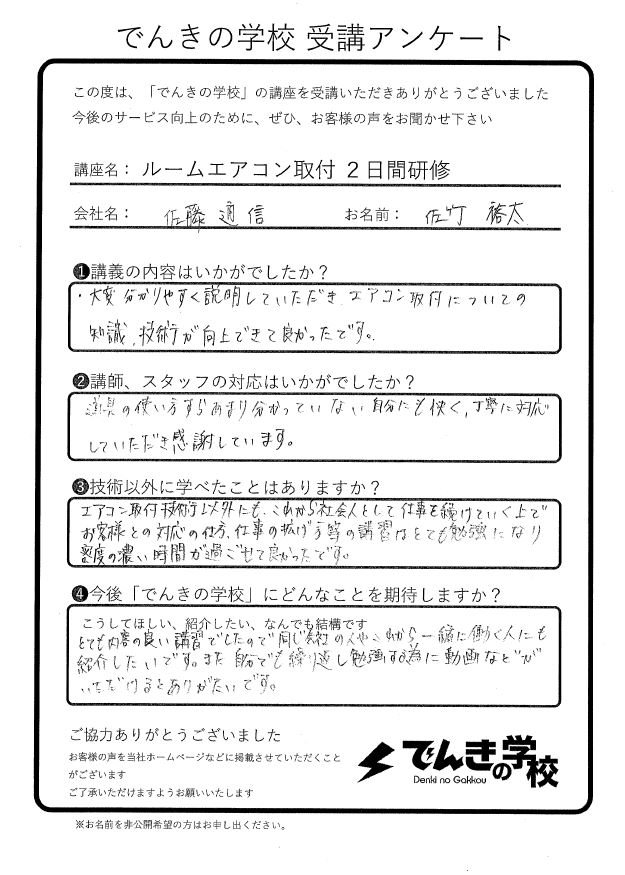 でんきの学校 受講アンケート
この度は、「でんきの学校」の講座を受講いただきありがとうございました
今後のサービス向上のために、ぜひ、お客様の声をお聞かせ下さい
講座名： ルームエアコン取付 2日間研修
会社名： 佐藤通信 お名前： 佐竹 裕太
❶講義の内容はいかがでしたか？
・大変分かりやすく説明していただき、エアコン取付についての
知識、技術が向上できて良かったです。
❷講師、スタッフの対応はいかがでしたか？
道具の使い方すらあまり分かっていない自分にも快く、丁寧に対応
していただき感謝しています。
❸技術以外に学べたことはありますか？
エアコン取付技術以外にも、これから社会人として仕事を続けていく上で
お客様との対応の仕方、仕事の拡げ方等の講習はとても勉強になり
密度の濃い時間が過ごせて良かったです。
❹今後「でんきの学校」にどんなことを期待しますか？
こうしてほしい、紹介したい、なんでも結構です
とても内容の良い講習でしたので同じ会社の人やこれから一緒に働く人にも
紹介したいです。また自分でも繰り返し勉強する為に動画などが
いただけるとありがたいです。
ご協力ありがとうございました
お客様の声を当社ホームページなどに掲載させていただくこと
がございます
ご了承いただけますようお願いいたします
でんきの学校
Denki no Gakkou
※お名前を非公開希望の方はお申し出ください。